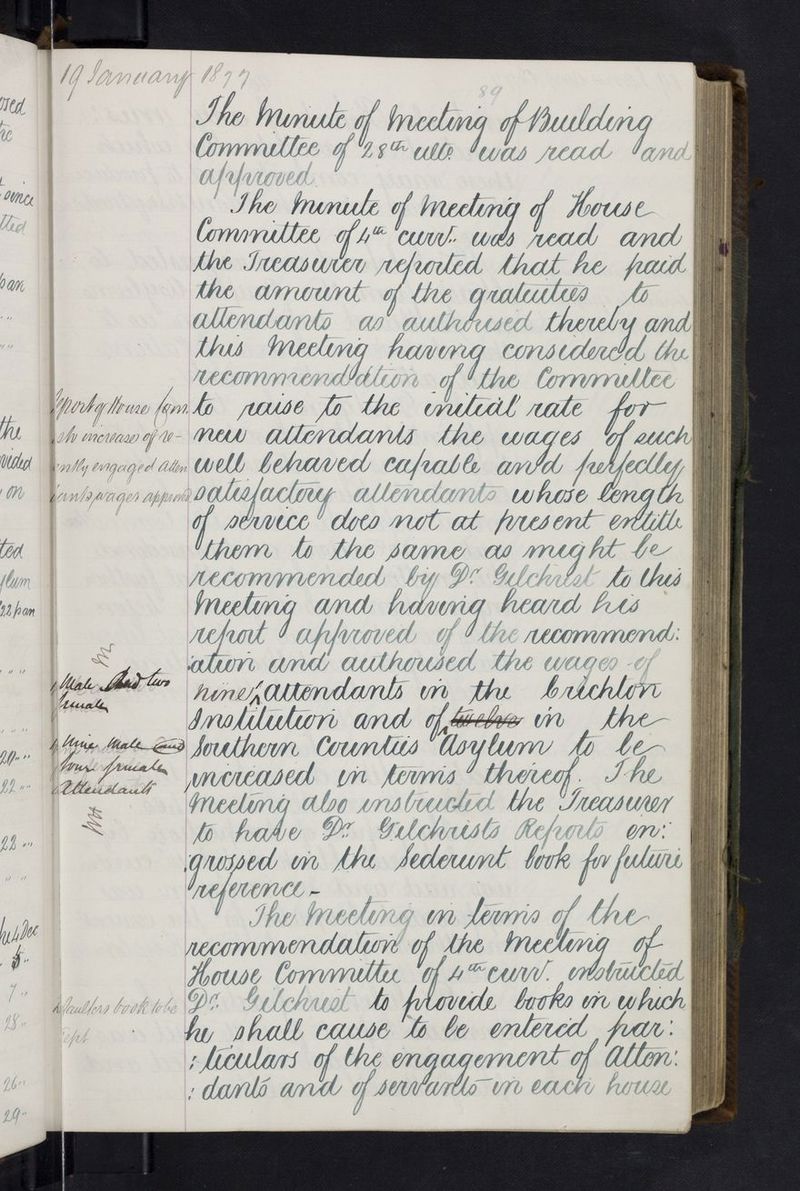 19 January 1877
89
The Minute of Meeting of Building
Committee of 28th ulto. was read and
approved.
The Minute of Meeting of House
Committee of 4th currt. was read and
the Treasurer reported that he paid
the amount of the gratuities to
attendants as authorised thereby and
this Meeting having considered the
recommendation of the Committee
to raise to the initial rate for
new attendants the wages of such
well behaved capable and perfectly
satisfactory attendants whose length
of service does not at present entitle
them to the same as might be
recommended by Dr. Gilchrist to this
Meeting and having heard his
report approved of the recommend:
:ation and authorised the wages of
nine attendants in the Crichton
Institution and of twelve in the
Southern Counties Asylum to be
increased in terms thereof. The
Meeting also instructed the Treasurer
to have Dr Gilchrists Reports en:
:grossed in the Sederunt book for future
reference.-
The Meeting in terms of the
recommendation of the Meeting of
House Committee of 4th currt. instructed
Dr. Gilchrist to provide books in which
he shall cause to be entered par:
:ticulars of the engagement of Atten:
:dants and of servants in each house
Report of House Com
increase of re-
cently engaged atten
dants wages approved
Male and two
female
nine Male and
four female
attendants
Defaulters book to be
kept
osed
since
tted
pan
the
vided
on
ted
ylum
22 pan
20
22
22
he 4 Dec
5
7
28
26
29